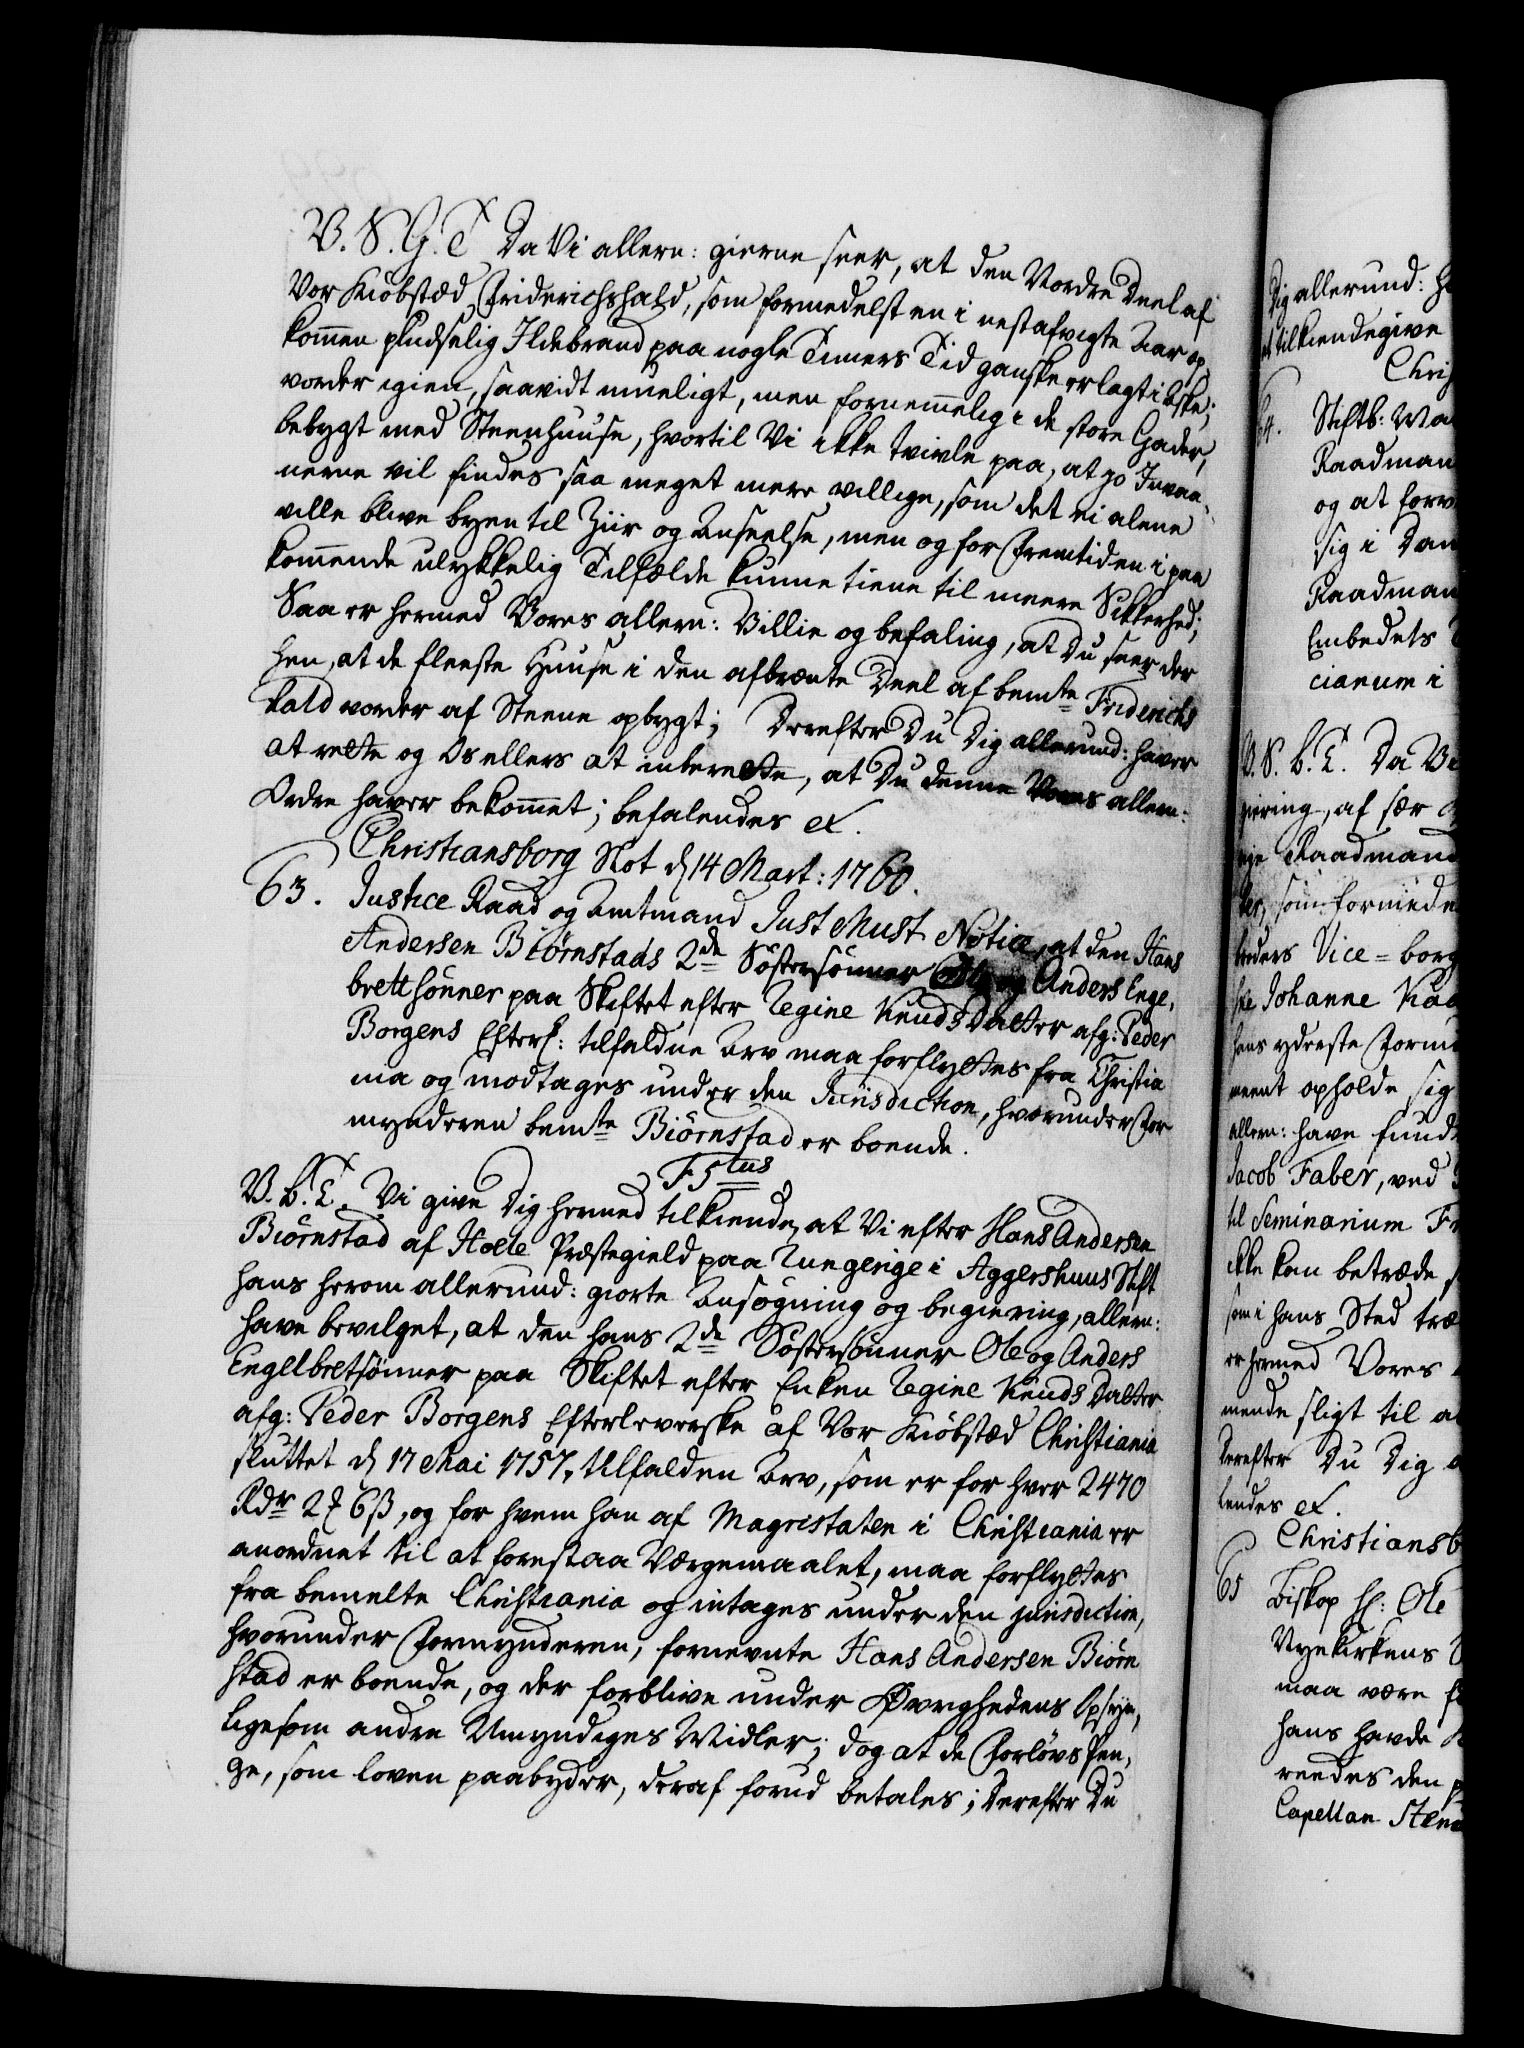 V. S. G. T. Da Vi allern: gierne seer, at den Nordre Deel af
Vor Kiøbstæd Friderichshald, som formedelst en i nestafvigte Aar op
kom̄en pludselig Ildebrand paa nogle Timers Tid ganske er lagt i Aske;
vorder igien, saavidt mueligt, men fornem̄elig i de store Gader,
bebygt med Steenhuuse, hvortil Vi ikke tvivle paa, at jo Invaa-
nerne vil findes saa meget mere villige, som det ei alene
ville blive byen til Ziir og Anseelse, men og for Fremtiden i paa
kom̄ende ulykkelig Tilfælde kunne tiene til meere Sikkerhed;
Saa er hermed Vores allern: Villie og befaling, at Du seer der
hen, at de fleeste Huuse i den afbrænte Deel af bemte Friderichs
hald vorder af Steene opbygt; Derefter Du Dig allerund: haver
at rette og Os ellers at inberette, at Du denne Vores allern:
Ordre haver bekom̄et; befalendes etc.
Christiansborg Slot d 14 Mart: 1760.
63. Justice Raad og Amtmand Just Must Notice, at den Hans
Andersen Biørnstads 2de Søstersønner Ole og Anders Enge,
brettsønner paa Skiftet efter Regine Knuds Datter afg: Peder
Borgens Efterl: tilfaldne Arv maa forflyttes fra Christia
nia og modtages under den Jurisdiction, hvorunder For
mynderen bemte Biørnstad er boende.
F 5tus
V. G. T. Vi give Dig hermed tilkiende, at Vi efter Hans Andersen
Biørnstad af Hole Præstegield paa Ringerige i Aggershuus Stift
hans herom allerund: giorte Ansøgning og begiering, allern:
have bevilget, at den hans 2de Søstersønner Ole og Anders
Engelbretsønner paa Skiftet efter Enken Regine Knuds Datter
afg: Peder Borgens Efterleverske af Vor Kiøbstæd Christiania
sluttet d 17 Mai 1757, tilfalden Arv, som er for hver 2470
Rdr 2 ₰ 6 β, og for hvem han af Magistraten i Christiania er
anordnet til at forestaa Værgemaalet, maa forflyttes
fra bemelte Christiania og intages under den jurisdiction,
hvorunder Formynderen, fornevnte Hans Andersen Biørn
stad er boende, og der forblive under Øvrighedens Opsyn,
ligesom andre Umyndiges Midler; dog at de Forløvs Pen,
ge, som loven paabyder, deraf forud betales; Derefter Du
Dig allerund:
at tilkiendegive
Chri
64. Stiftb:
Raadman
og at forv
sig i Dan
Raadman
Embedets
cianum i
V. S. G. T. Da Vi
giering, af sær
Raadmand
som formede
Vice-borg
Johanne
hans yderste
meent opholde sig
allern: have fund
Jacob Faber, ved
til Seminarium Fr
ikke kan betræde
som i hans Sted træ
er hermed Vores
mende sligt til
Derefter Du Dig
lendes etc.
Christiansb
65 Biskop H: Ole
Nyekirkens
maa være
hans havde
reedes den
Capellan Sten